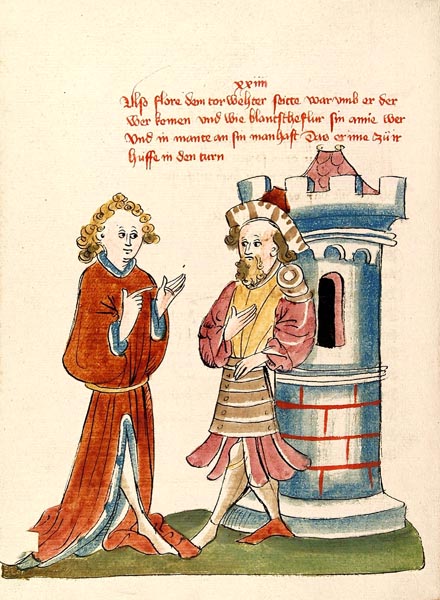 xxiiii
Also flore dem torwehter seitte warumb er der
wer komen vnd wie blantscheflur sin amie wer
Vnd in mante an sin manhaft Das er ime zů ir
hùffe in den turn